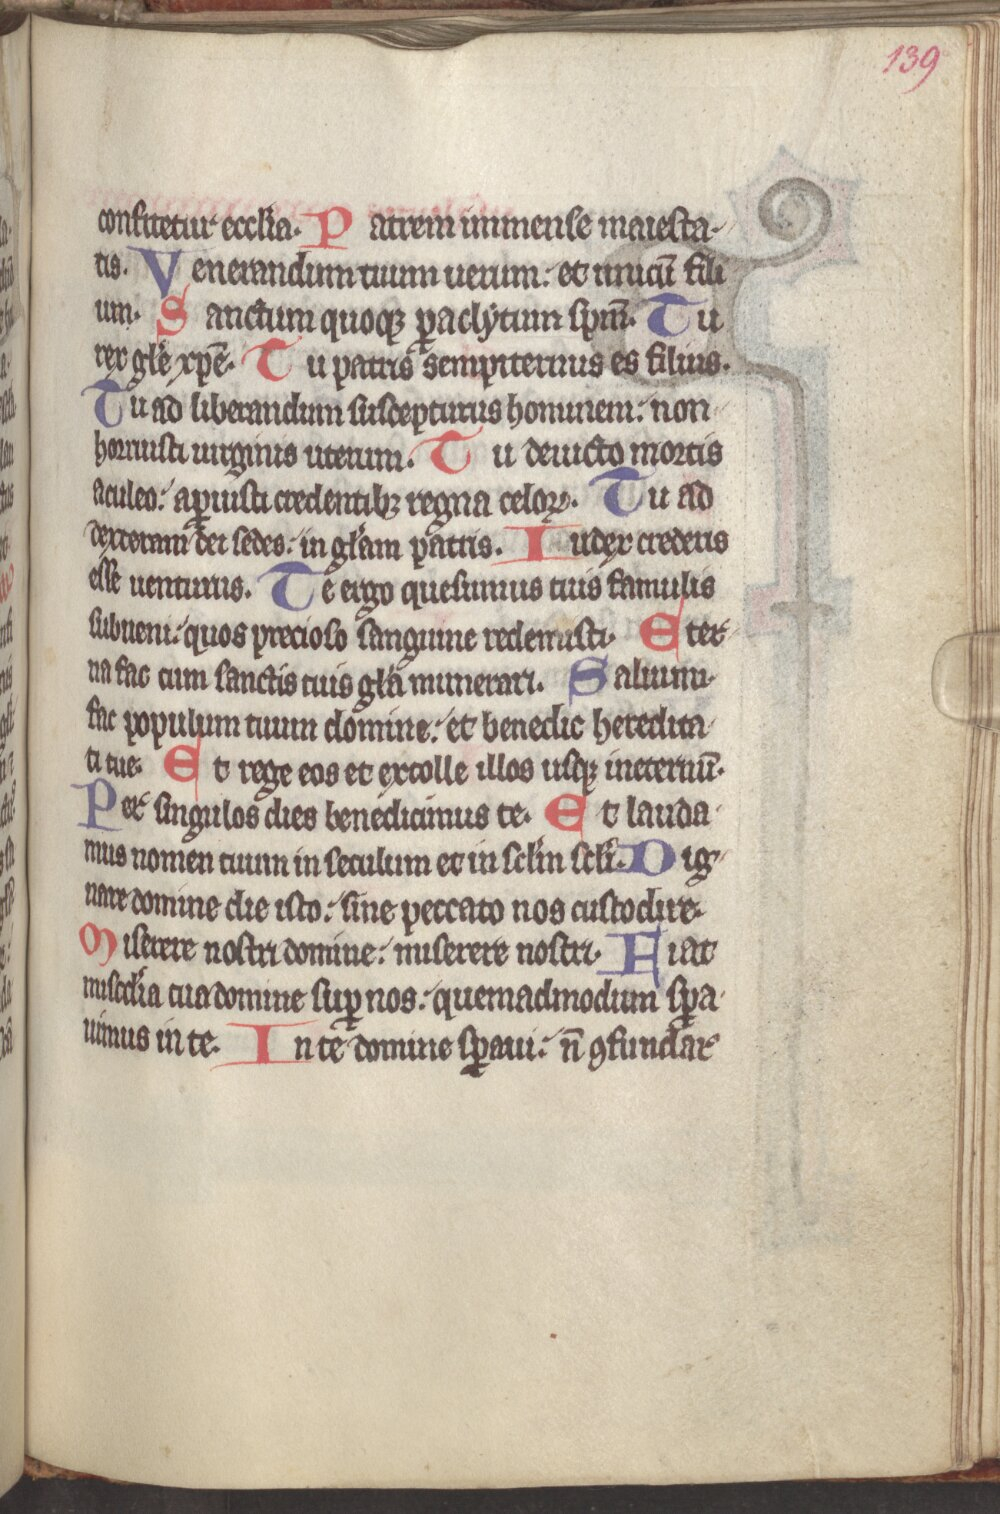 139
confitetur ecclīa. Patrem immense maiesta-
tis. Venerandum tuum uerum: et unicū fili
um. Sanctum quoqꝫ ꝑaclytum spm̄. Tu
rex glē xpē. Tu patris sempiternus es filius.
Tu ad liberandum suscepturus hominem: non
horruisti uirginis uterum. Tu deuicto mortis
aculeo: aꝑuisti credentibꝫ regna celoꝝ. Tu ad
dexteram dei sedes: in glām patris. Iudex crederis
esse uenturus. Te ergo quesumus tuis famulis
subueni: quos precioso sanguine redemisti. Eter
na fac cum sanctis tuis glā munerari. Saluum
fac populum tuum domine: et benedic heredita
ti tue. Et rege eos et extolle illos usqꝫ ineternū.
Per singulos dies benedicimus te. Et lauda
mus nomen tuum in seculum et in sclm̄ sclī. Dig
nare domine die isto: sine peccato nos custodire.
Miserere nostri domine: miserere nostri. Fiat
misecdīa tua domine suꝑ nos: quemadmodum sꝑa
uimus in te. In te domine sꝑaui: n̄ ꝯfundar